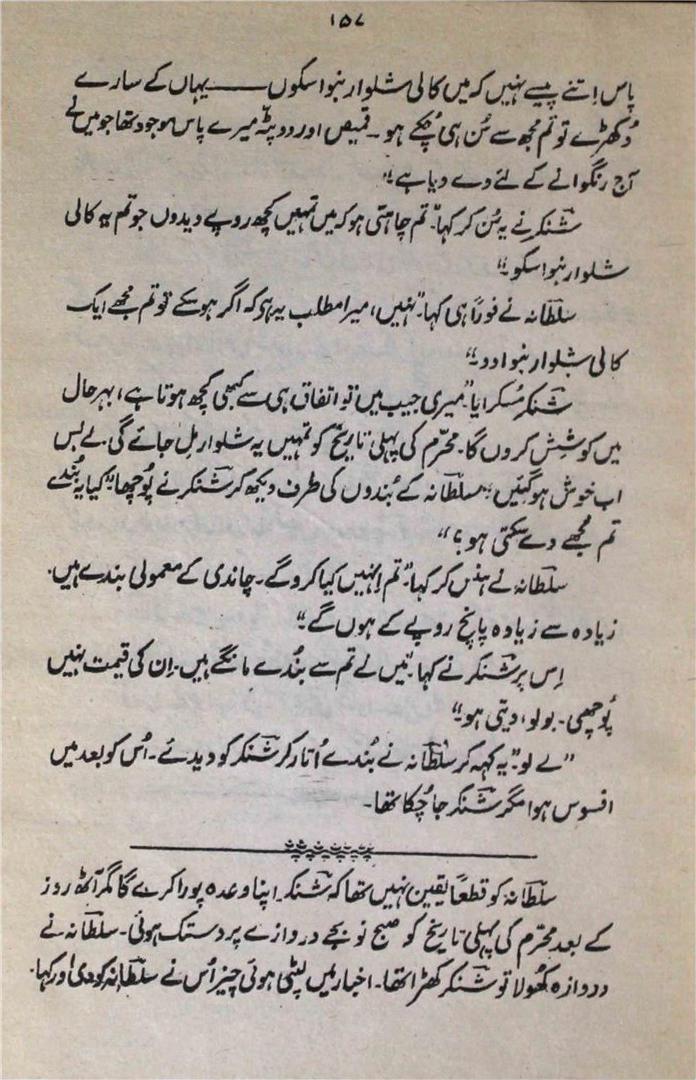 ۱۵۷
پاس اِتنے پیسے نہیں کہ میں کالی شلوار بنوا سکوں ——— یہاں کے سارے
دُکھڑے تو تم مجھ سے سُن ہی چُکے ہو۔ قمیض اور دوپٹہ میرے پاس موجود تھا جو میں نے
آج رنگوانے کے لئے دے دیا ہے۔“
شنکر نے یہ سُن کر کہا۔ ”تم چاہتی ہو کہ میں تمہیں کچھ روپے دیدوں جو تم یہ کالی
شلوار بنوا سکو۔“
سلطانہ نے فوراً ہی کہا۔ ”نہیں، میرا مطلب یہ ہے کہ اگر ہو سکے تو تم مجھے ایک
کالی شلوار بنوا دو۔“
شنکر مُسکرایا۔ ”میری جیب میں تو اتفاق ہی سے کبھی کچھ ہوتا ہے، بہرحال
میں کوشش کروں گا۔ محرّم کی پہلی تاریخ کو تمہیں یہ شلوار مل جائے گی۔ لے بس
اب خوش ہو گئیں۔“ سلطانہ کے بُندوں کی طرف دیکھ کر شنکر نے پُوچھا۔ ”کیا یہ بُندے
تم مجھے دے سکتی ہو؟“
سلطانہ نے ہنس کر کہا۔ ”تم اِنہیں کیا کرو گے۔ چاندی کے معمولی بندے ہیں۔
زیادہ سے زیادہ پانچ روپے کے ہوں گے۔“
اِس پر شنکر نے کہا۔ ”میں نے تم سے بُندے مانگے ہیں۔ اِن کی قیمت نہیں
پُوچھی۔ بولو، دیتی ہو۔“
”لے لو۔“ یہ کہہ کر سلطانہ نے بُندے اُتار کر شنکر کو دیدئے۔ اُس کو بعد میں
افسوس ہوا مگر شنکر جا چُکا تھا۔
سلطانہ کو قطعاً یقین نہیں تھا کہ شنکر اپنا وعدہ پورا کرے گا مگر آٹھ روز
کے بعد محرّم کی پہلی تاریخ کو صبح نو بجے دروازے پر دستک ہوئی۔ سلطانہ نے
دروازہ کھولا تو شنکر کھڑا تھا۔ اخبار میں لپٹی ہوئی چیز اُس نے سلطانہ کو دی اور کہا۔